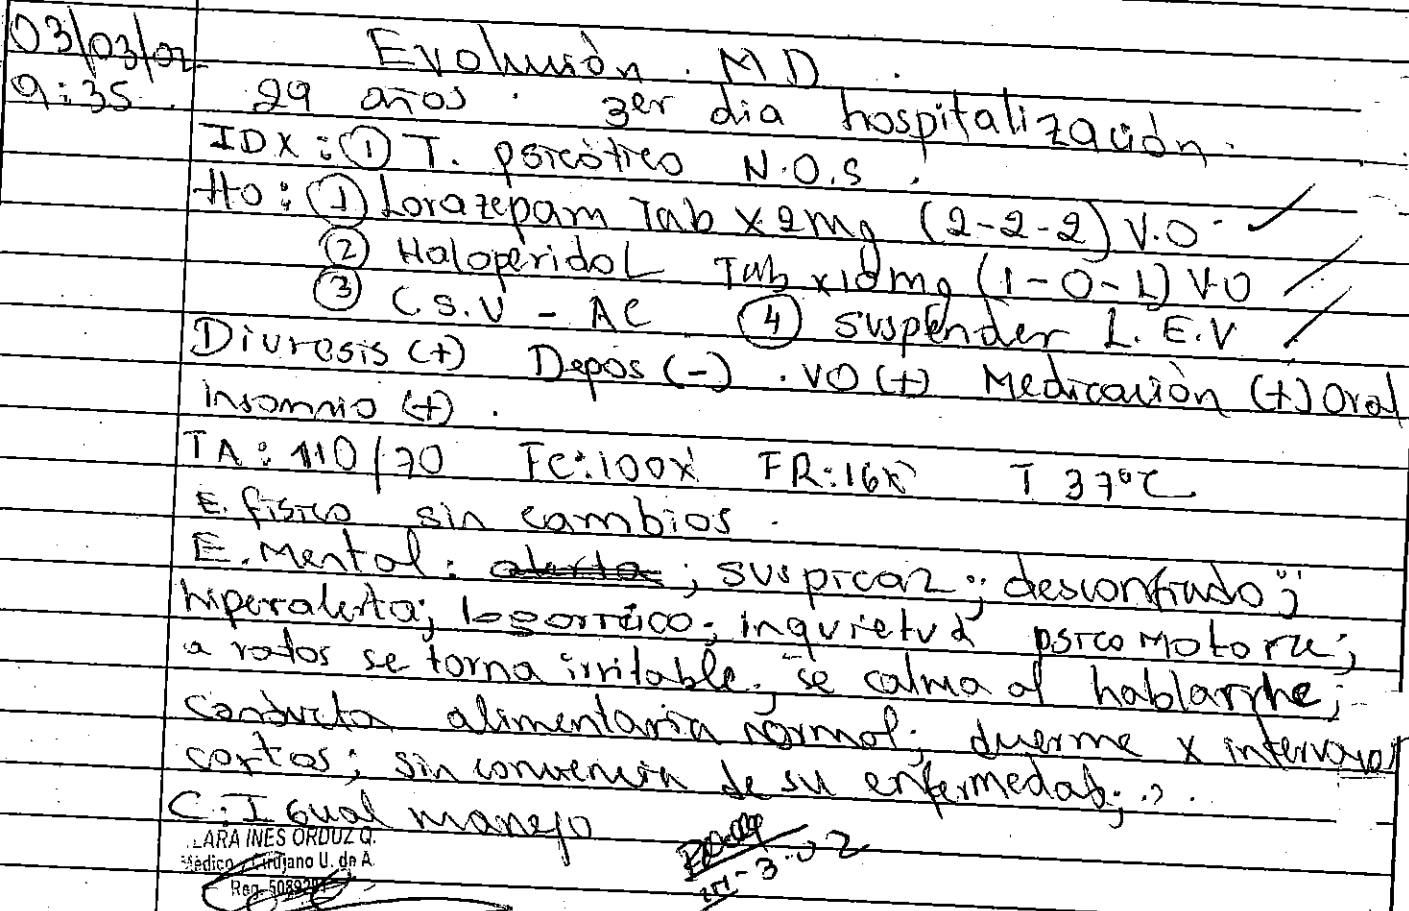 03/03/02 Evolución. MD.
9:35. 29 años. 3er dia hospitalización.
IDX: ① T. psicótico N.O.S.
Ho: ① Lorazepam Tab x 2mg (2-2-2) V.O
② Haloperidol Tab x 10mg (1-0-1) V.O
③ C.S.V - AC ④ suspender L.E.V
Diuresis (+) Depos (-). VO (+) Medicación (+) Oral
insomnio (+).
TA: 110/70 FC: 100x' FR: 16x' T 37°C
E. físico sin cambios.
E. Mental: alerta; suspicaz; desconfiado;
hiperalerta; logorréico; inquietud psicomotora;
a ratos se torna irritable; se calma al hablarle;
conducta alimentaria normal; duerme x intervalos
cortos; sin conciencia de su enfermedad;
C: Igual manejo
LARA INES ORDUZ Q.
Médico Cirujano U. de A. III-3-02
Reg.